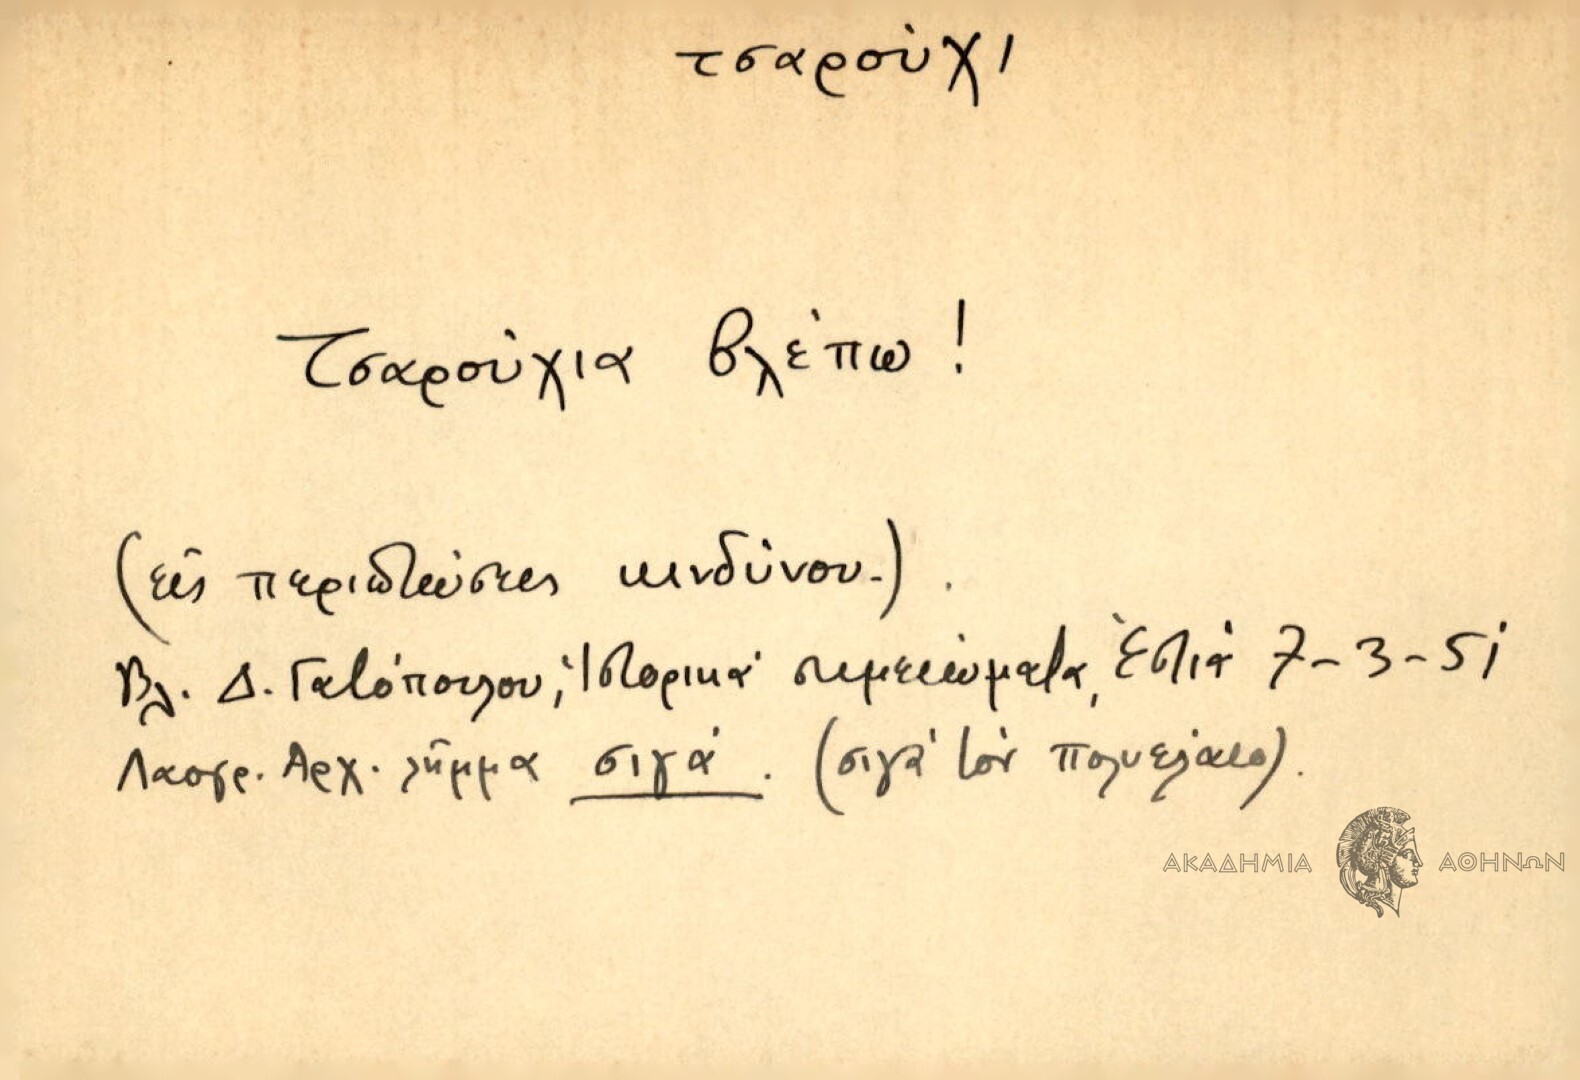 τσαρούχι
Τσαρούχια βλέπω!
(εἰς περιπτώσεις κινδύνου.).
Βλ. Δ. Γατόπουλου, Ἱστορικά σημειώματα, Ἑστία 7-3-51
Λαογρ. Αρχ. λῆμμα σιγά. (σιγά τόν πολυέλαιο).
ΑΚΑΔΗΜΙΑ ΑΘΗΝΩΝ